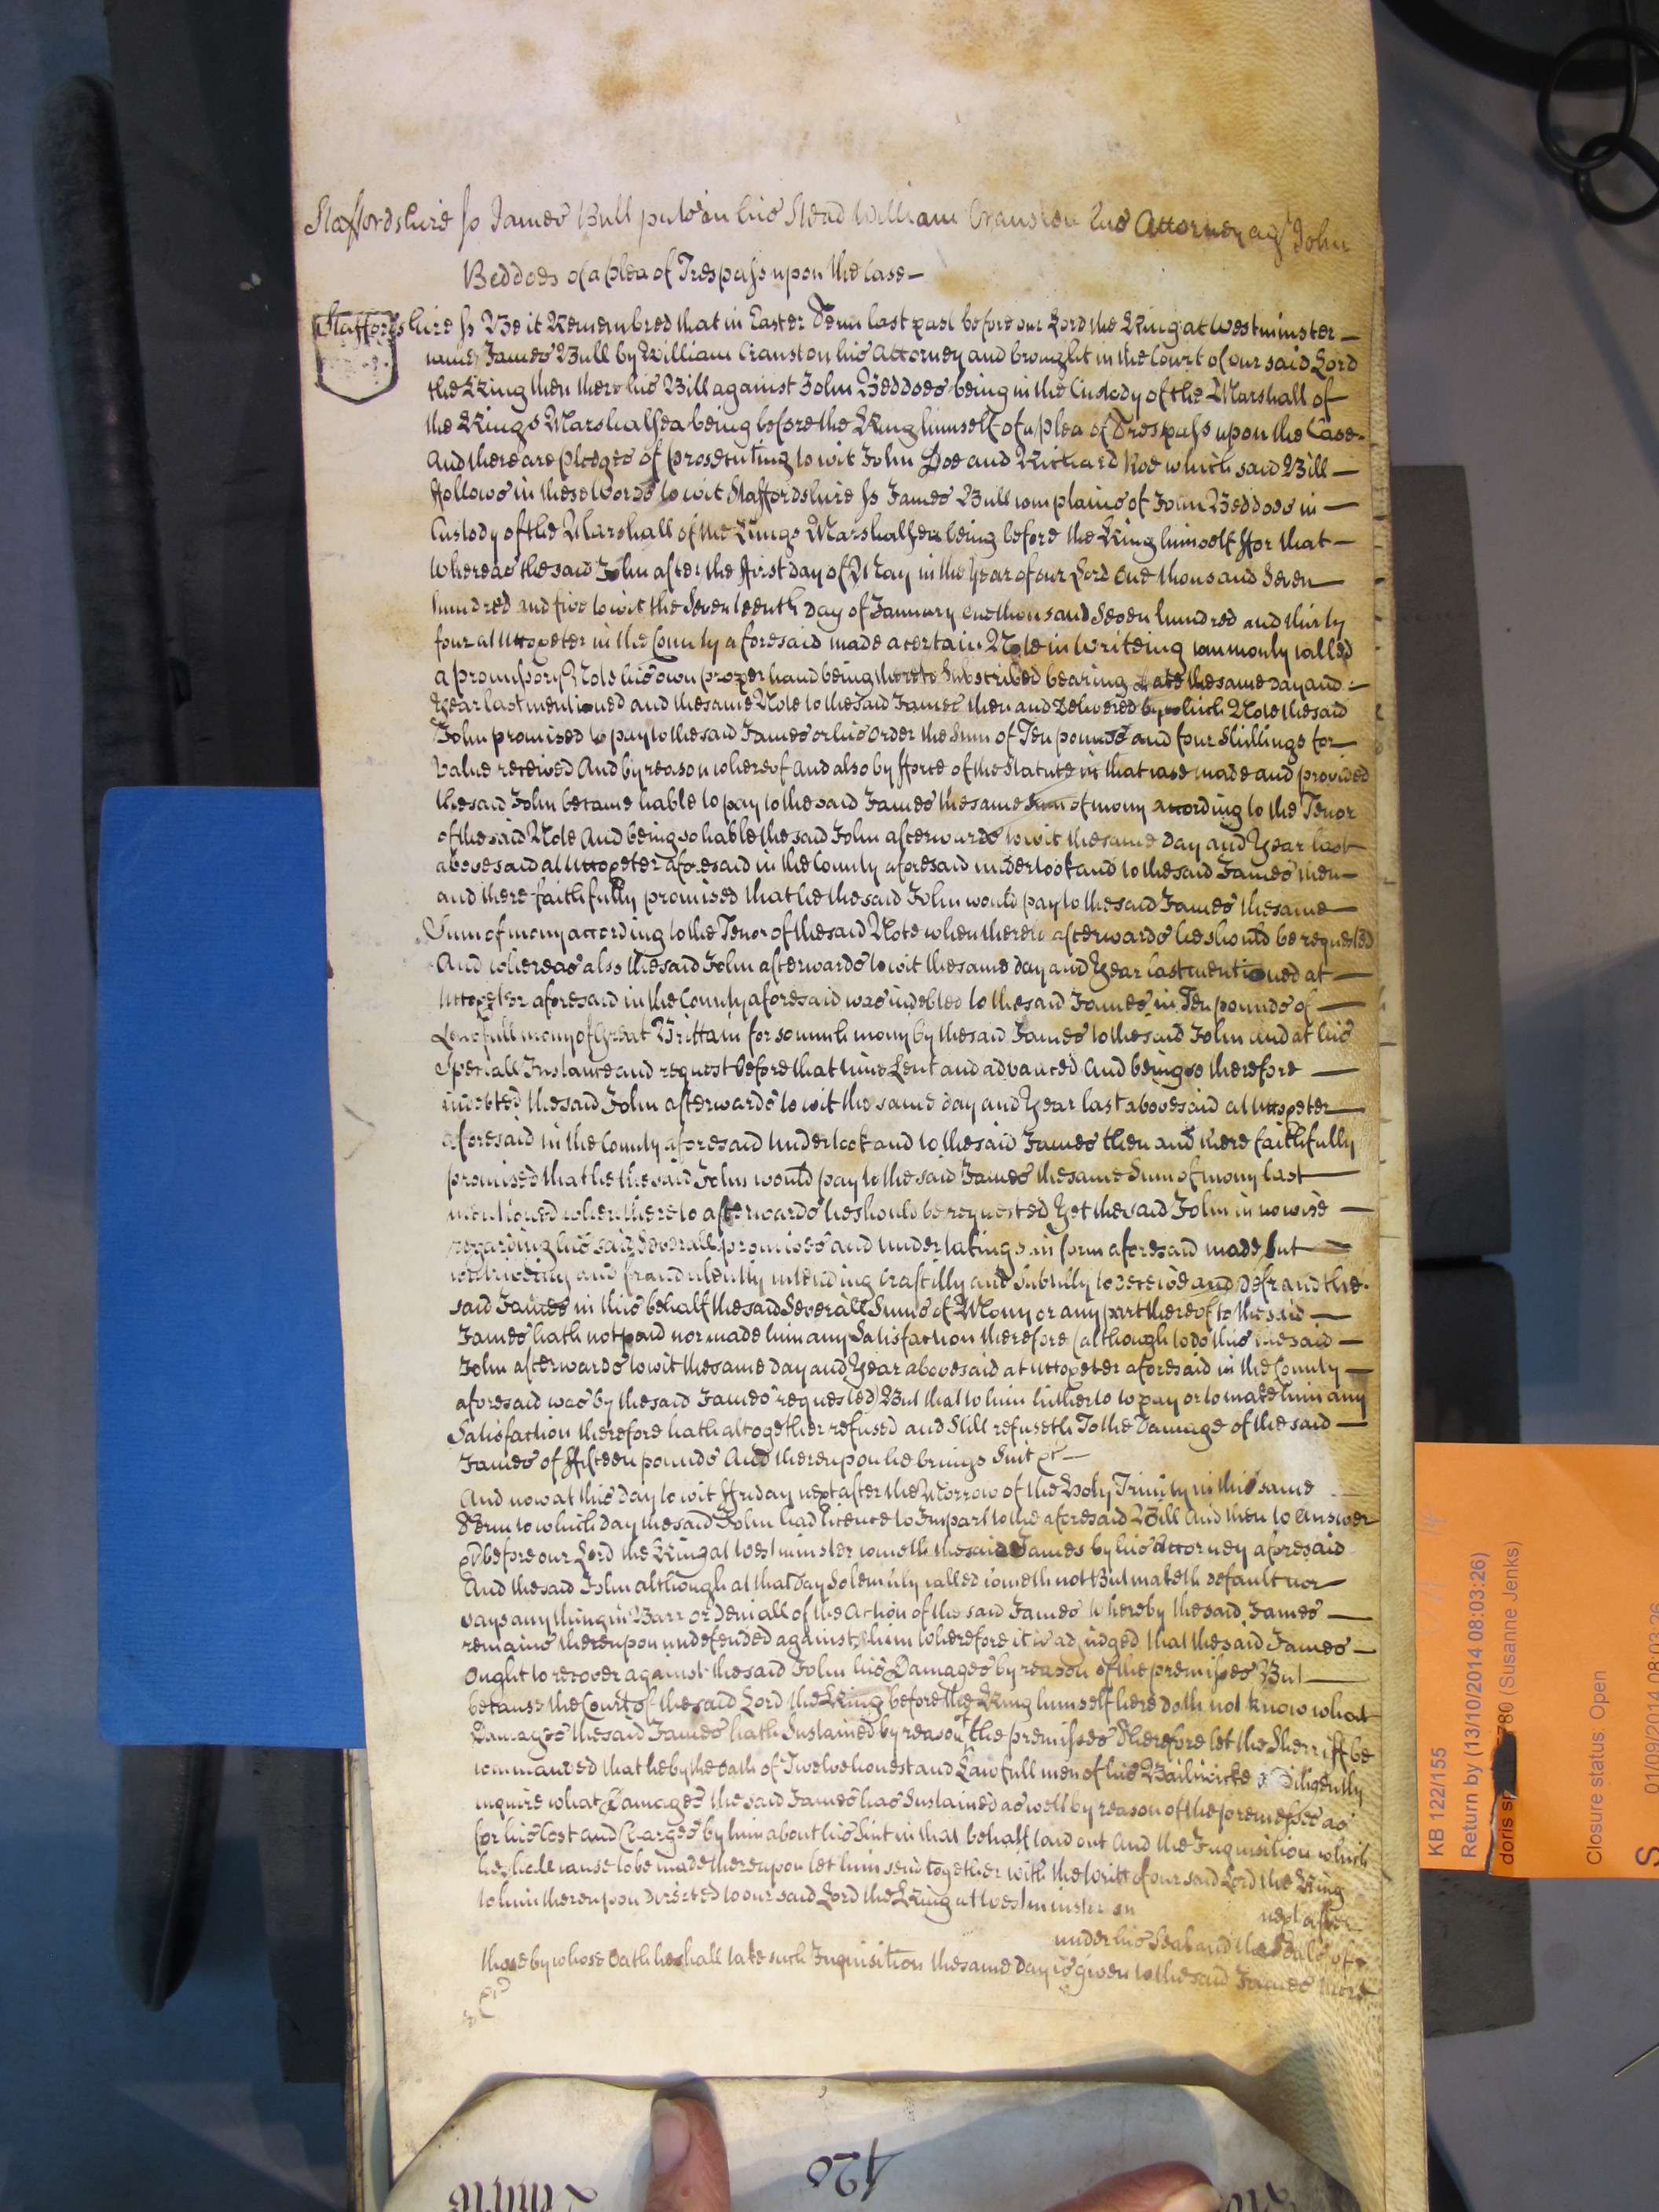 Staffordshire ss James Bull puts in his Stead William Cranston his Attorney agt John
Beddoes of a plea of Trespass upon the Case —
Staffordshire ss Be it Remembred that in Easter Term last past before our Lord the King at Westminster —
came James Bull by William Cranston his Attorney and brought in the Court of our said Lord
the King then there his Bill against John Beddoes being in the Custody of the Marshall of
the Kings Marshalsea being before the King himself of a plea of Trespass upon the Case
And there are pledges of prosecuting to wit John Doe and Richard Roe which said Bill —
ffollows in these Words to wit Staffordshire ss James Bull complains of John Beddoes in —
Custody of the Marshall of the Kings Marshalsea being before the King himself ffor that —
Whereas the said John after the ffirst day of May in the Year of our Lord One thousand Seven —
hundred and five to wit the Seventeenth day of January one thousand Seven hundred and thirty
four at Uttoxeter in the County aforesaid made a certain Note in Writeing commonly called
a promissory Note his own proper hand being thereto Subscribed bearing date the same day and —
Year last mentioned and the same Note to the said James then and Delivered by which Note the said
John promised to pay to the said James or his Order the Sum of Ten pounds and four Shillings for —
Value received And by reason whereof and also by fforce of the Statute in that case made and provided
the said John became liable to pay to the said James the same Sum of mony according to the Tenor
of the said Note And being so liable the said John afterwards to wit the same day and Year last
abovesaid at Uttoxeter aforesaid in the County aforesaid undertook and to the said James then —
and there faithfully promised that he the said John would pay to the said James the same —
Sum of mony according to the Tenor of the said Note when thereto afterwards he should be requested
And whereas also the said John afterwards to wit the same day and Year last mentioned at —
Uttoxeter aforesaid in the County aforesaid was indebted to the said James in Ten pounds of —
Lawfull mony of Great Brittain for so much mony by the said James to the said John and at his
Speciall Instance and request before that time Lent and advanced And being so therefore —
indebted the said John afterwards to wit the same day and Year last abovesaid at Uttoxeter —
aforesaid in the County aforesaid Undertook and to the said James then and there faithfully
promised that he the said John would pay to the said James the same Sum of mony last —
mentioned when thereto afterwards he should be requested Yet the said John in no wise —
regarding his said Severall promises and undertakings in form aforesaid made but —
contriveing and fraudulently intending Craftilly and Subtilly to deceive and defraud the
said James in this behalf the said Severall Sums of Mony or any part thereof to the said —
James hath not paid nor made him any Satisfaction therefore (although to do this the said —
John afterwards to wit the same day and Year abovesaid at Uttoxeter aforesaid in the County —
aforesaid was by the said James requested) But that to him hitherto to pay or to make him any
Satisfaction therefore hath altogether refused and Still refuseth To the Damage of the said —
James of ffifteen pounds And thereupon he brings Suit &c —
And now at this day to wit ffriday next after the Morrow of the Holy Trinity in this same
Term to which day the said John had licence to Imparl to the aforesaid Bill And then to Answer
&c before our Lord the King at Westminster cometh the said James by his Attorney aforesaid
And the said John although at that day Solemnly called cometh not But maketh default nor
says any thing in Barr or Deniall of the Action of the said James Whereby the said James —
remains thereupon undefended against him Wherefore it is adjudged that the said James —
Ought to recover against the said John his Damages by reason of the premisses But —
because the Court of the said Lord the King before the King himself here doth not know what
Damages the said James hath Sustained by reason of the premisses Therefore let the Sherriff be
commanded that he by the Oath of Twelve honest and Lawfull men of his Bailiwicke Diligently
inquire what Damages the said James has Sustained as well by reason of the premisses as
for his Cost and Charges by him about his Suit in that behalf laid out And the Inquisition which
he shall cause to be made thereupon let him send together with the Writt of our said Lord the King
to him thereupon directed to our said Lord the King at Westminster on next after
under his Seal and the Seals of
those by whose Oath he shall take such Inquisition the same day is given to the said James there
&c
420
KB 122/155
Return by (13/10/2014 08:03:26)
(Susanne Jenks)
Closure status: Open
01/09/2014 08:03:26